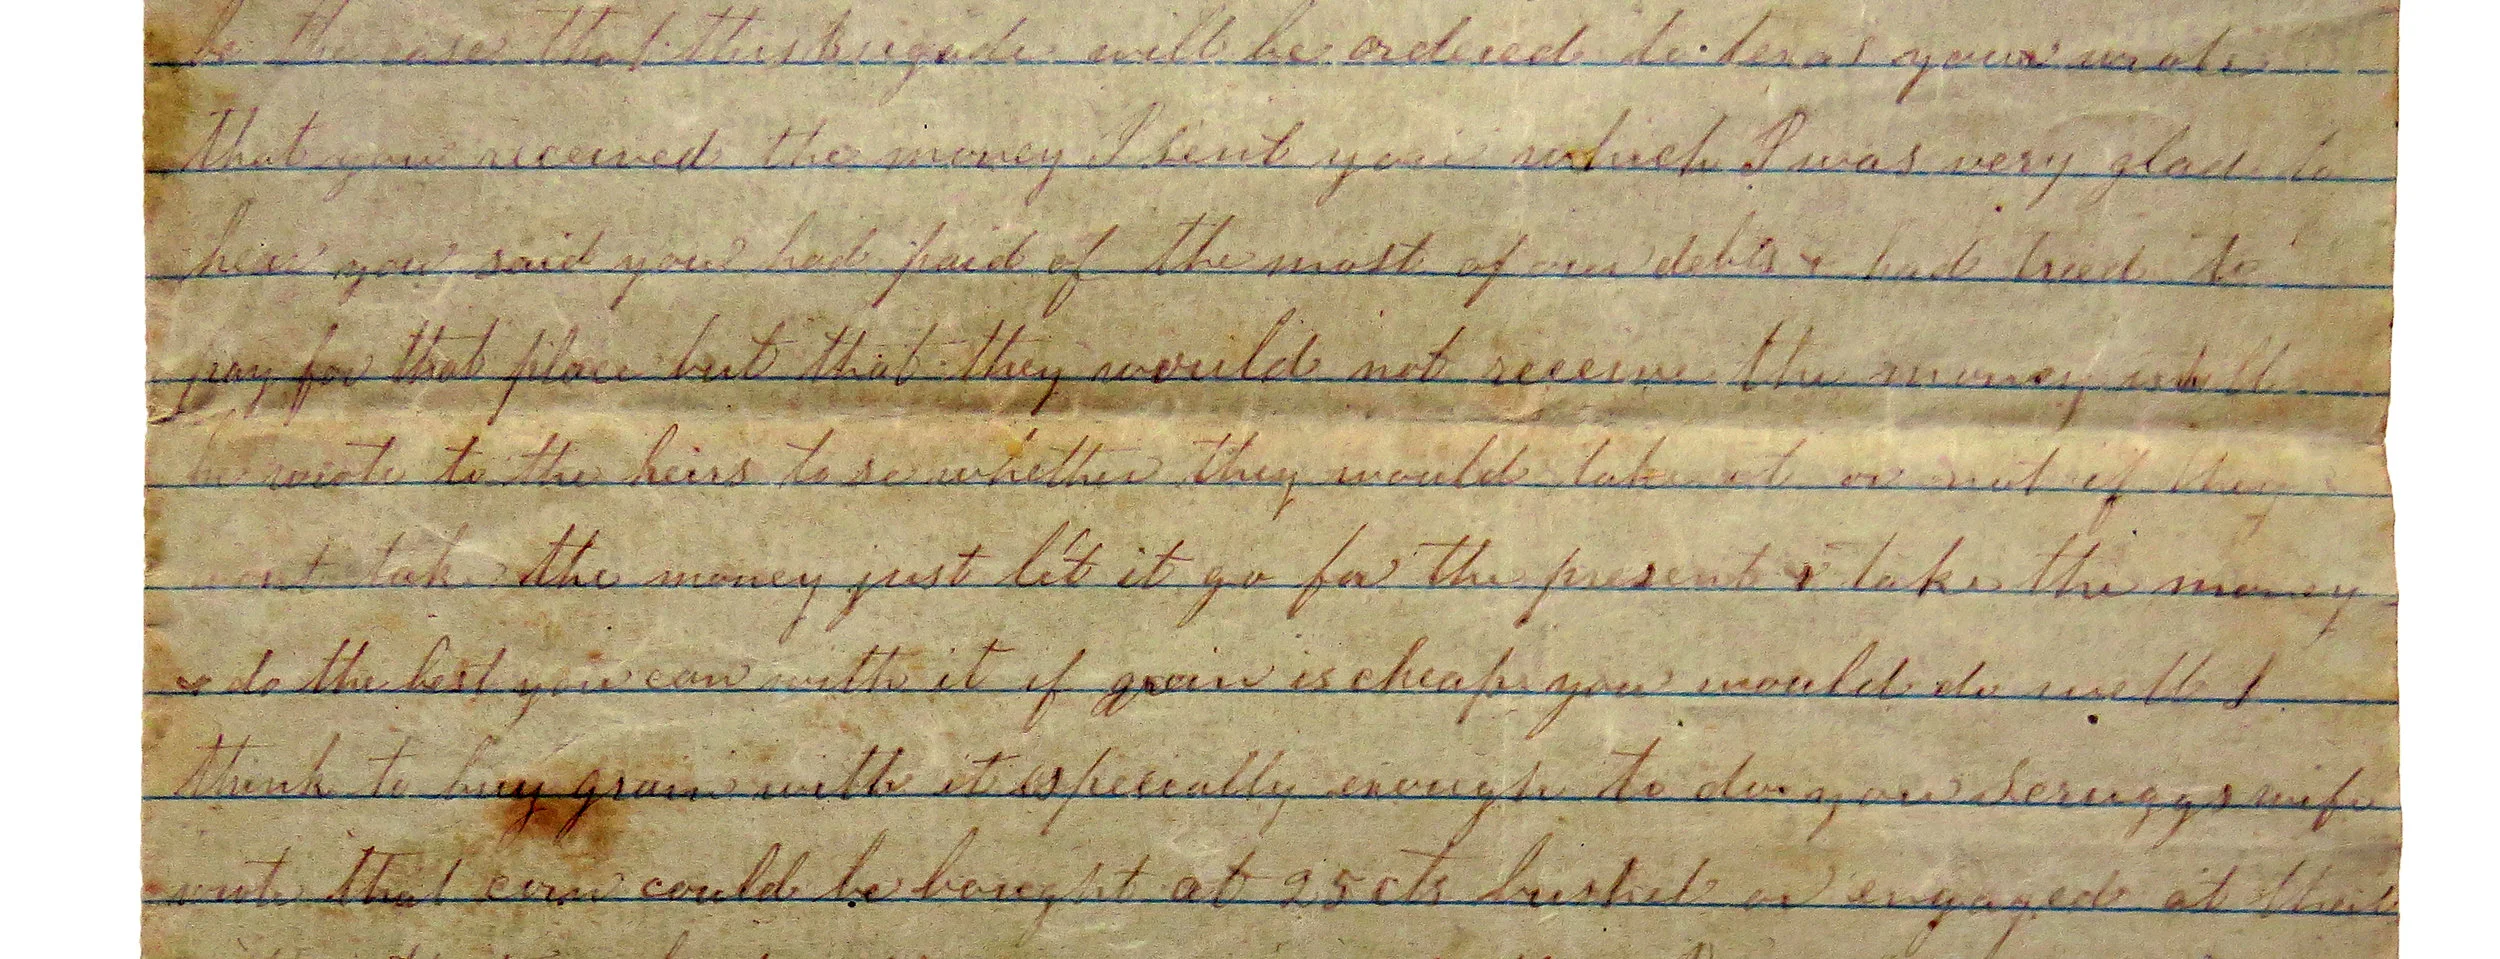 be the case that this Brigade will be ordered to texas you wrote
that you received the money I sent you which I was very glad to
hear you said you had paid of the most of our debts & had tried to
pay for that place but that they would not receive the money well
wrote to the heirs to se whether they would take it or not if they
wont take the money just let it go for the present & take the money
& do the best you can with it if grain is cheap you would do well I
think to buy grain with it especially enough to do you Scruggs wife
wrote that corn could be bought at 25 cts bushel or engaged at that